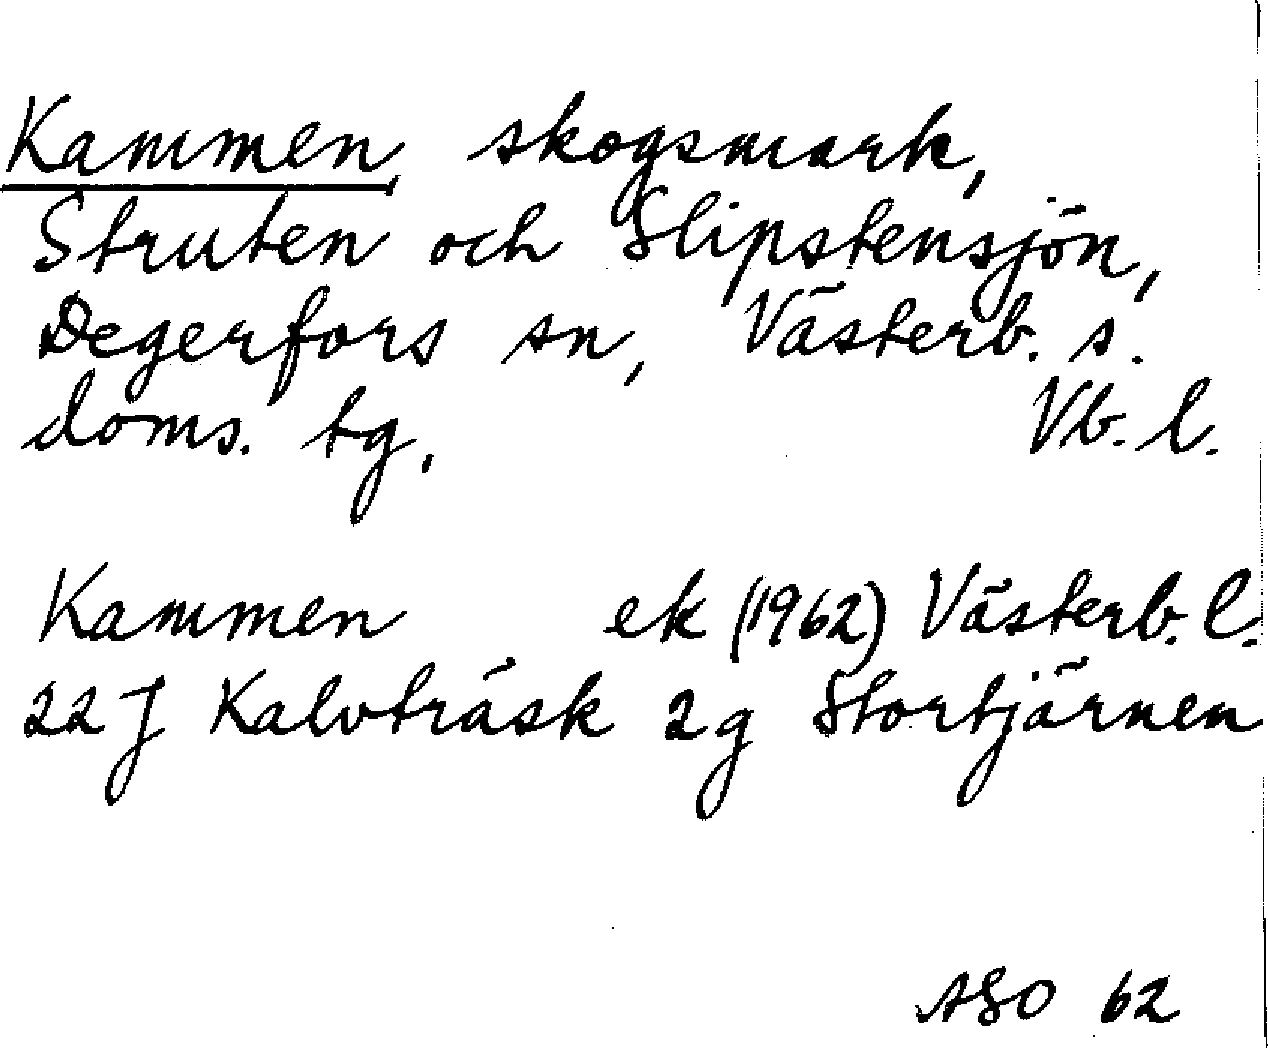 Kammen, skogsmark,
Struten och Slipstensjön,
Degerfors sn, Västerb. s.
doms. tg. Vb. l.
Kammen ek (1962) Västerb. l.
22 J Kalvträsk 2g Stortjärnen
ASO 62